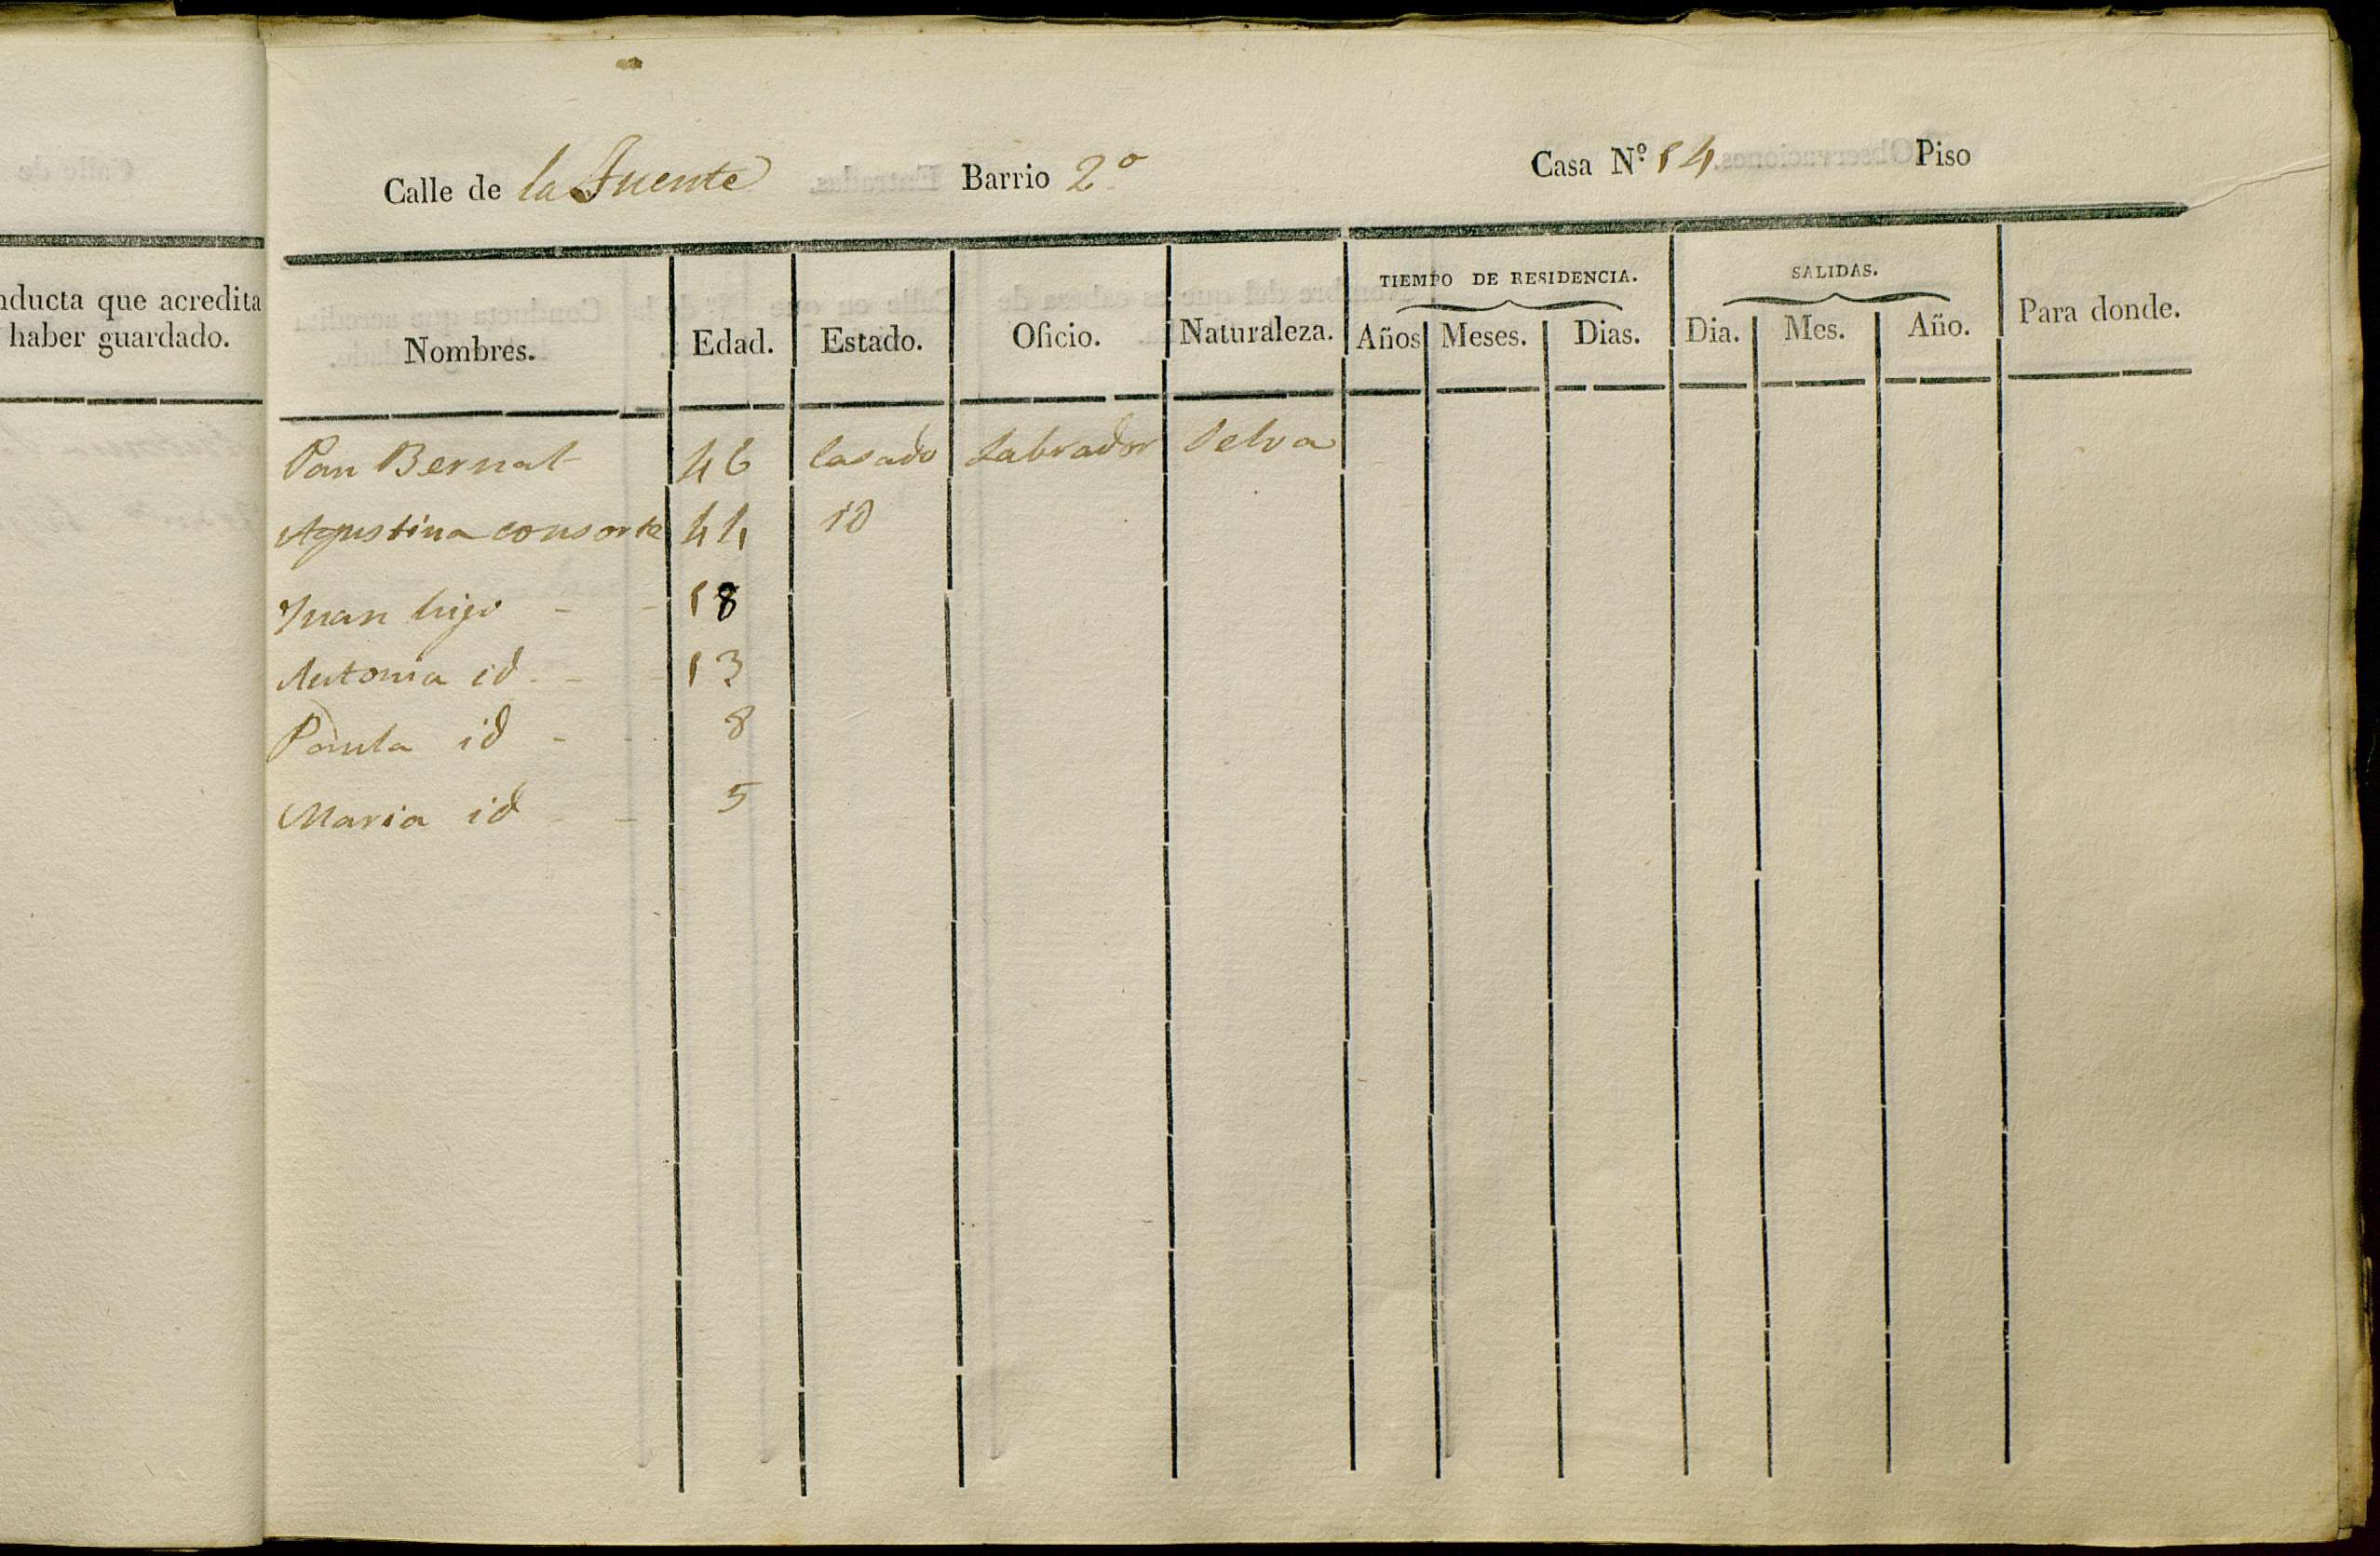 nducta que acredita
haber guardado.
Calle de la Fuente Barrio 2º Casa Nº 14 Piso
TIEMPO DE RESIDENCIA. SALIDAS.
Nombres. Edad. Estado. Oficio. Naturaleza. Años Meses. Dias. Dia. Mes. Año. Para donde.
Pau Bernat 46 Casado Labrador Selva
Agustina consorte 44 id
Juan hijo - - 18
Antonia id. - - 13
Paula id - - 8
Maria id - - 5